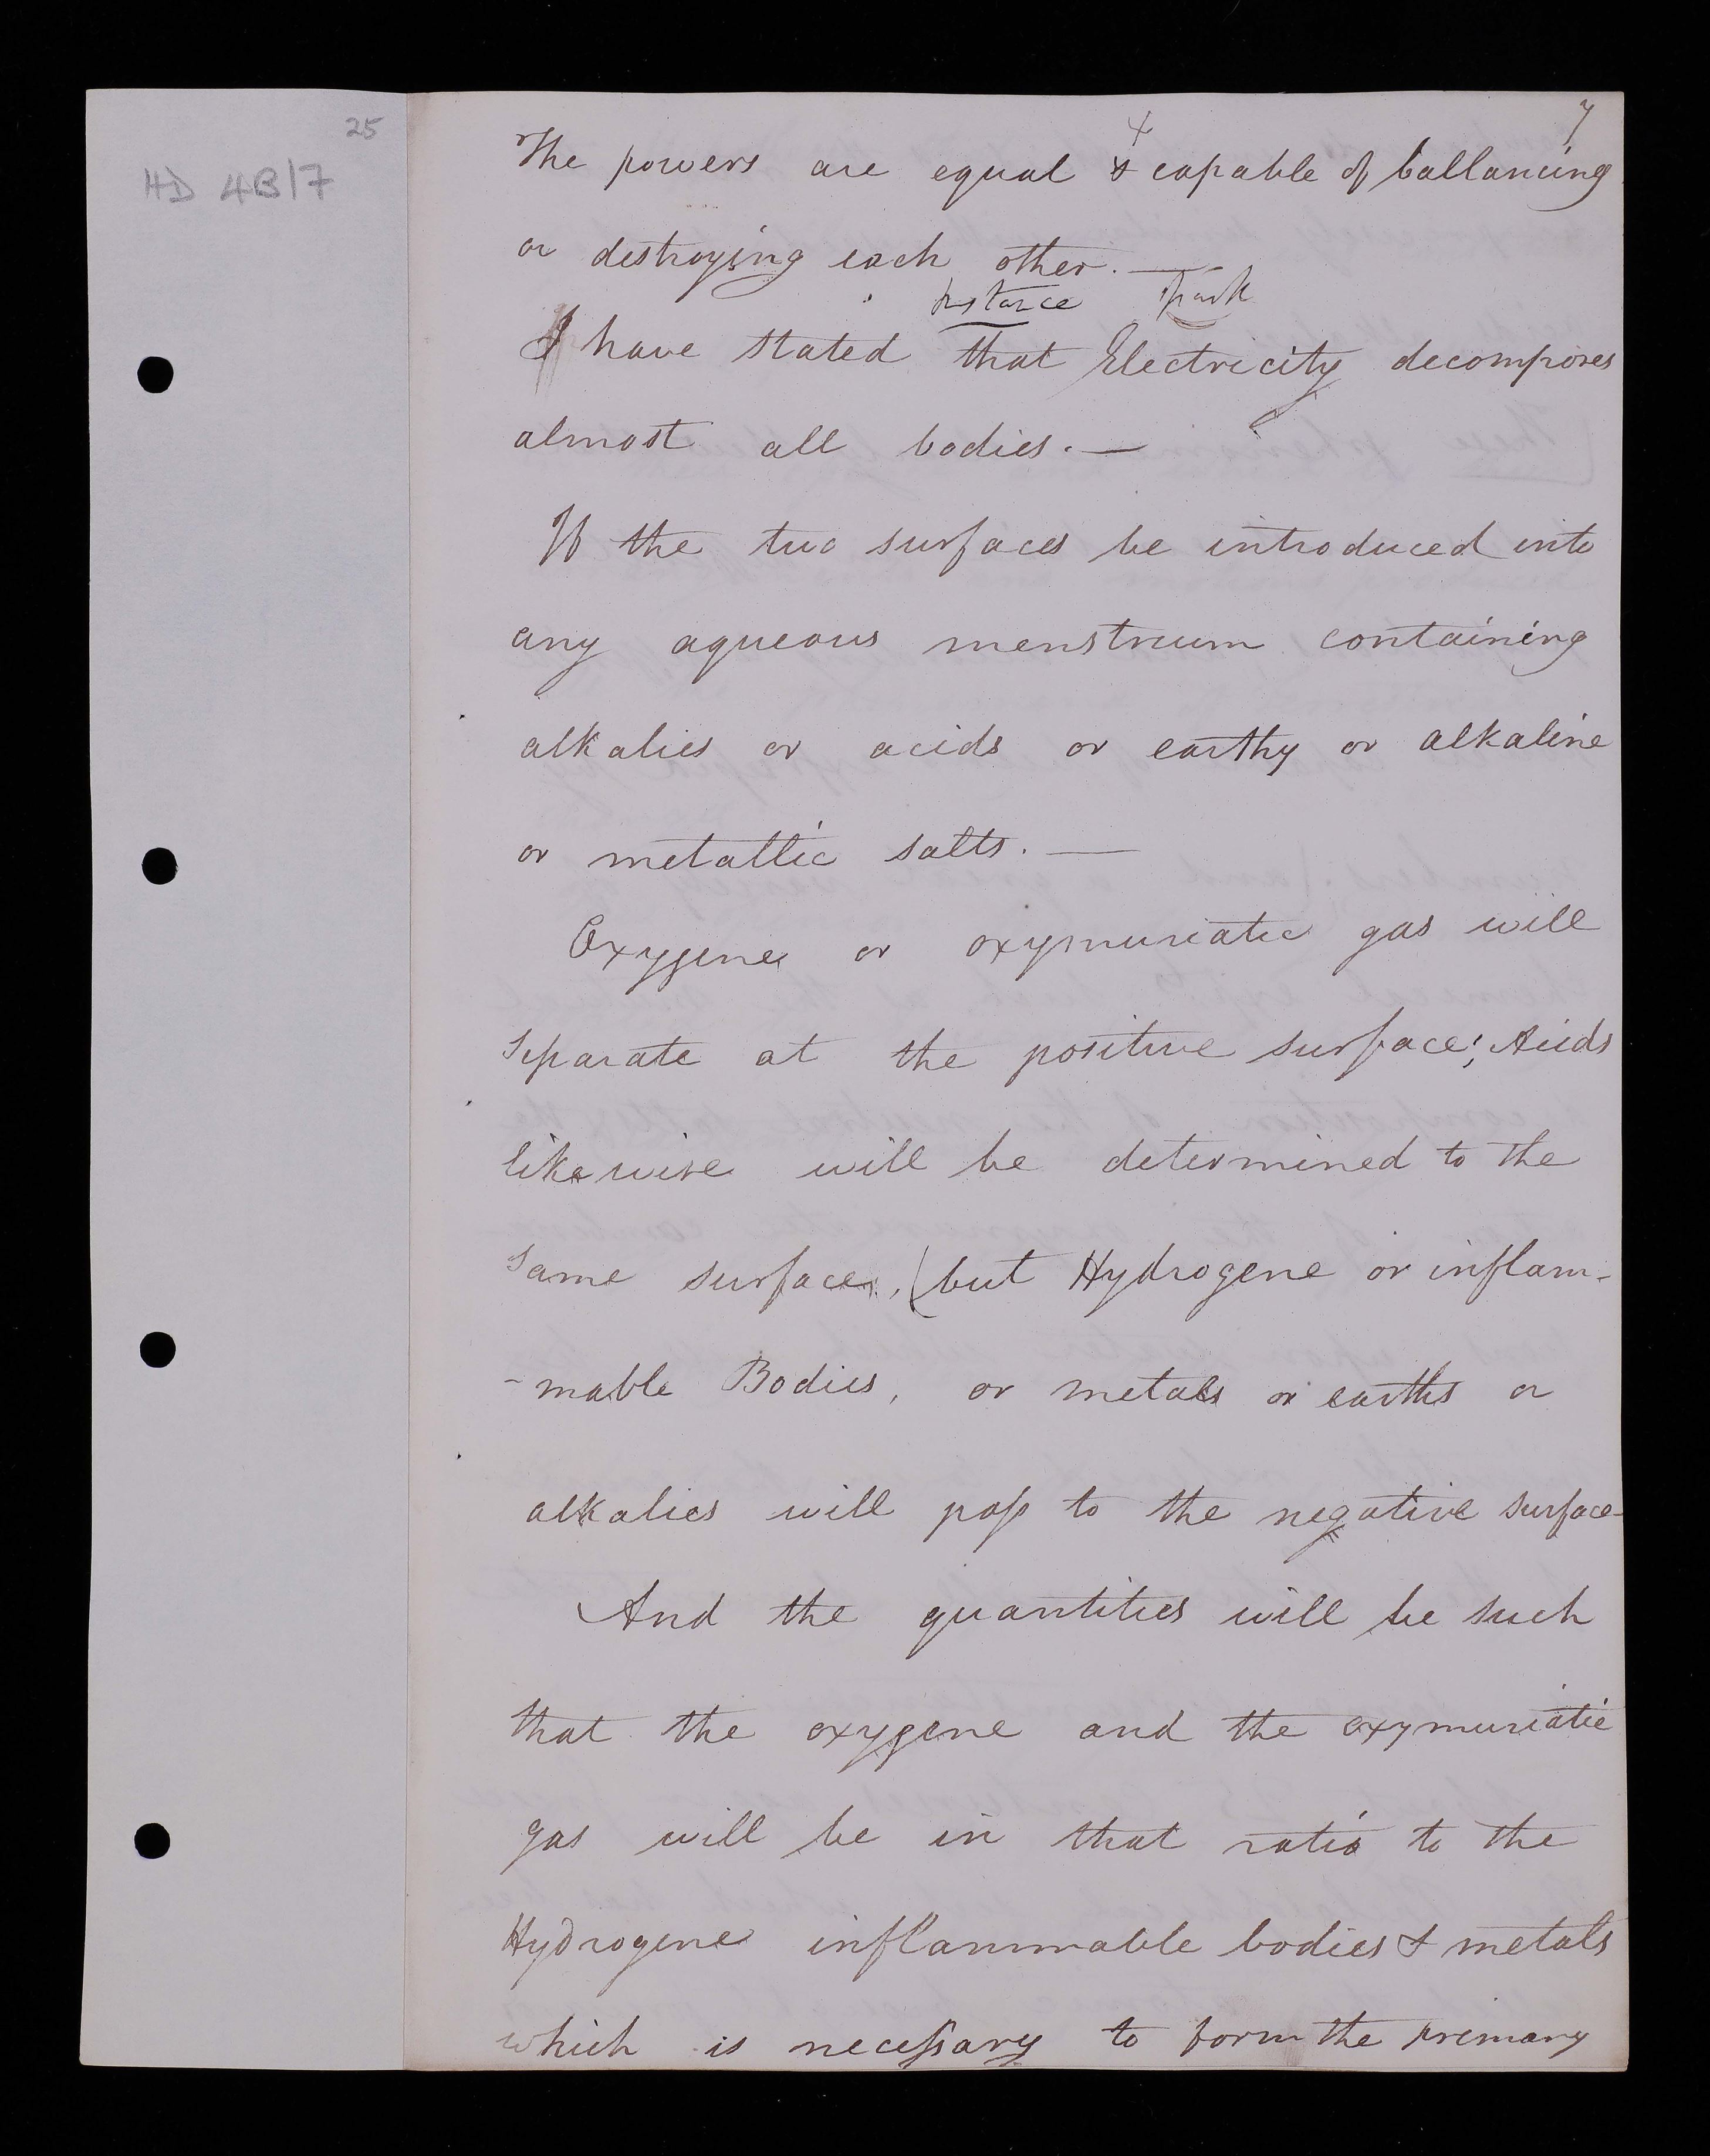 25
HD 4B/7
7
4
The powers are equal & capable of ballancing
or destroying each other. —
I have stated that Electricity decomposes
almost all bodies. —
If the two surfaces be introduced into
any aqueous menstruum containing
alkalies or acids or earthy or alkaline
or metallic salts. —
Oxygene or oxymuriatic gas will
separate at the positive surface; Acids
likewise will be determined to the
same surface, (but Hydrogene or inflam-
-mable Bodies, or metals or earths or
alkalies will pass to the negative surface
And the quantities will be such
that the oxygene and the oxymuriatic
gas will be in that ratio to the
Hydrogene inflammable bodies & metals
which is necessary to form the primary